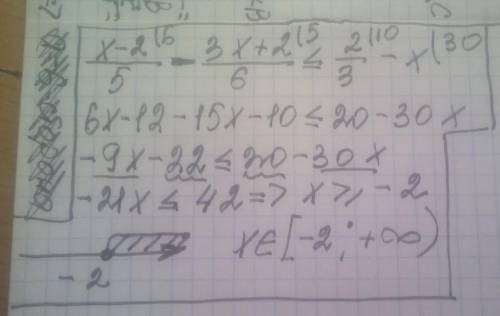 (x-2)/5 (6 - (3x+2)/6 (5 ≤ 2/3 (10 - x (30
6x-12-15x-10≤20-30x
-9x-22≤20-30x
-21x≤42=> x≥-2
-2 x∈[-2; +∞)